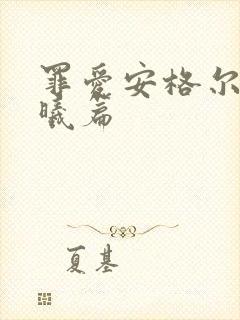 罪爱安格尔
曦篇
夏基